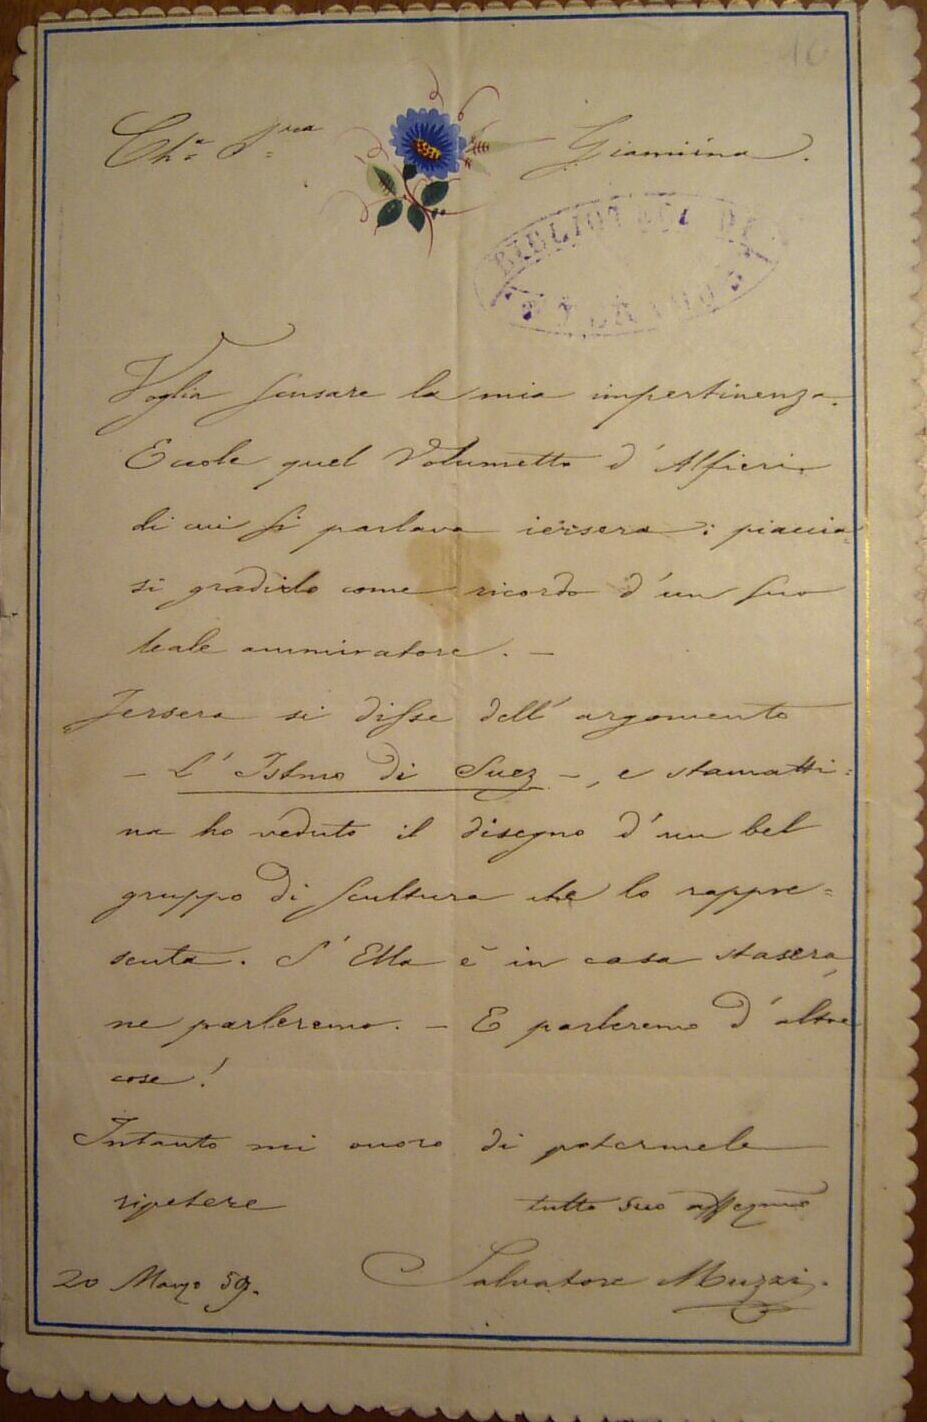 Ch.a S.ra Giannina.
BIBLIOTECA DI
Voglia scusare la mia impertinenza.
Eccole quel Volumetto d'Alfieri
di cui si parlava iersera: piaccia-
si gradirlo come ricordo d'un suo
leale ammiratore. —
Jersera si disse dell'argomento
— L'Istmo di Suez —, e stamatti=
na ho veduto il disegno d'un bel
gruppo di scultura che lo rappre=
senta. S'Ella è in casa stasera,
ne parleremo. — E parleremo d'altre
cose!
Intanto mi onoro di potermele
ripetere tutto suo affezmo
20 Marzo 59. Salvatore Muzzi.
16